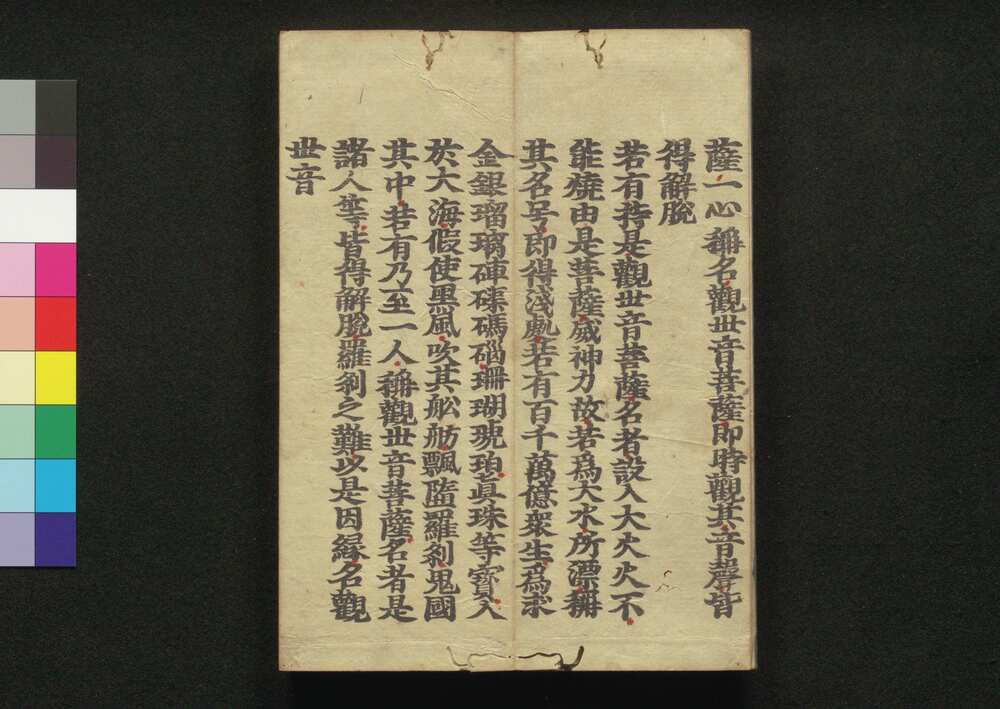 薩一心稱名觀世音菩薩即時觀其音聲皆
得解脫
若有持是觀世音菩薩名者設入大火火不
能燒由是菩薩威神力故若為大水所漂稱
其名号即得淺處若有百千萬億衆生為求
金銀瑠璃硨磲碼碯珊瑚琥珀眞珠等寶入
於大海假使黒風吹其舩舫飄墮羅刹鬼國
其中若有乃至一人稱觀世音菩薩名者是
諸人等皆得解脫羅刹之難以是因縁名觀
世音